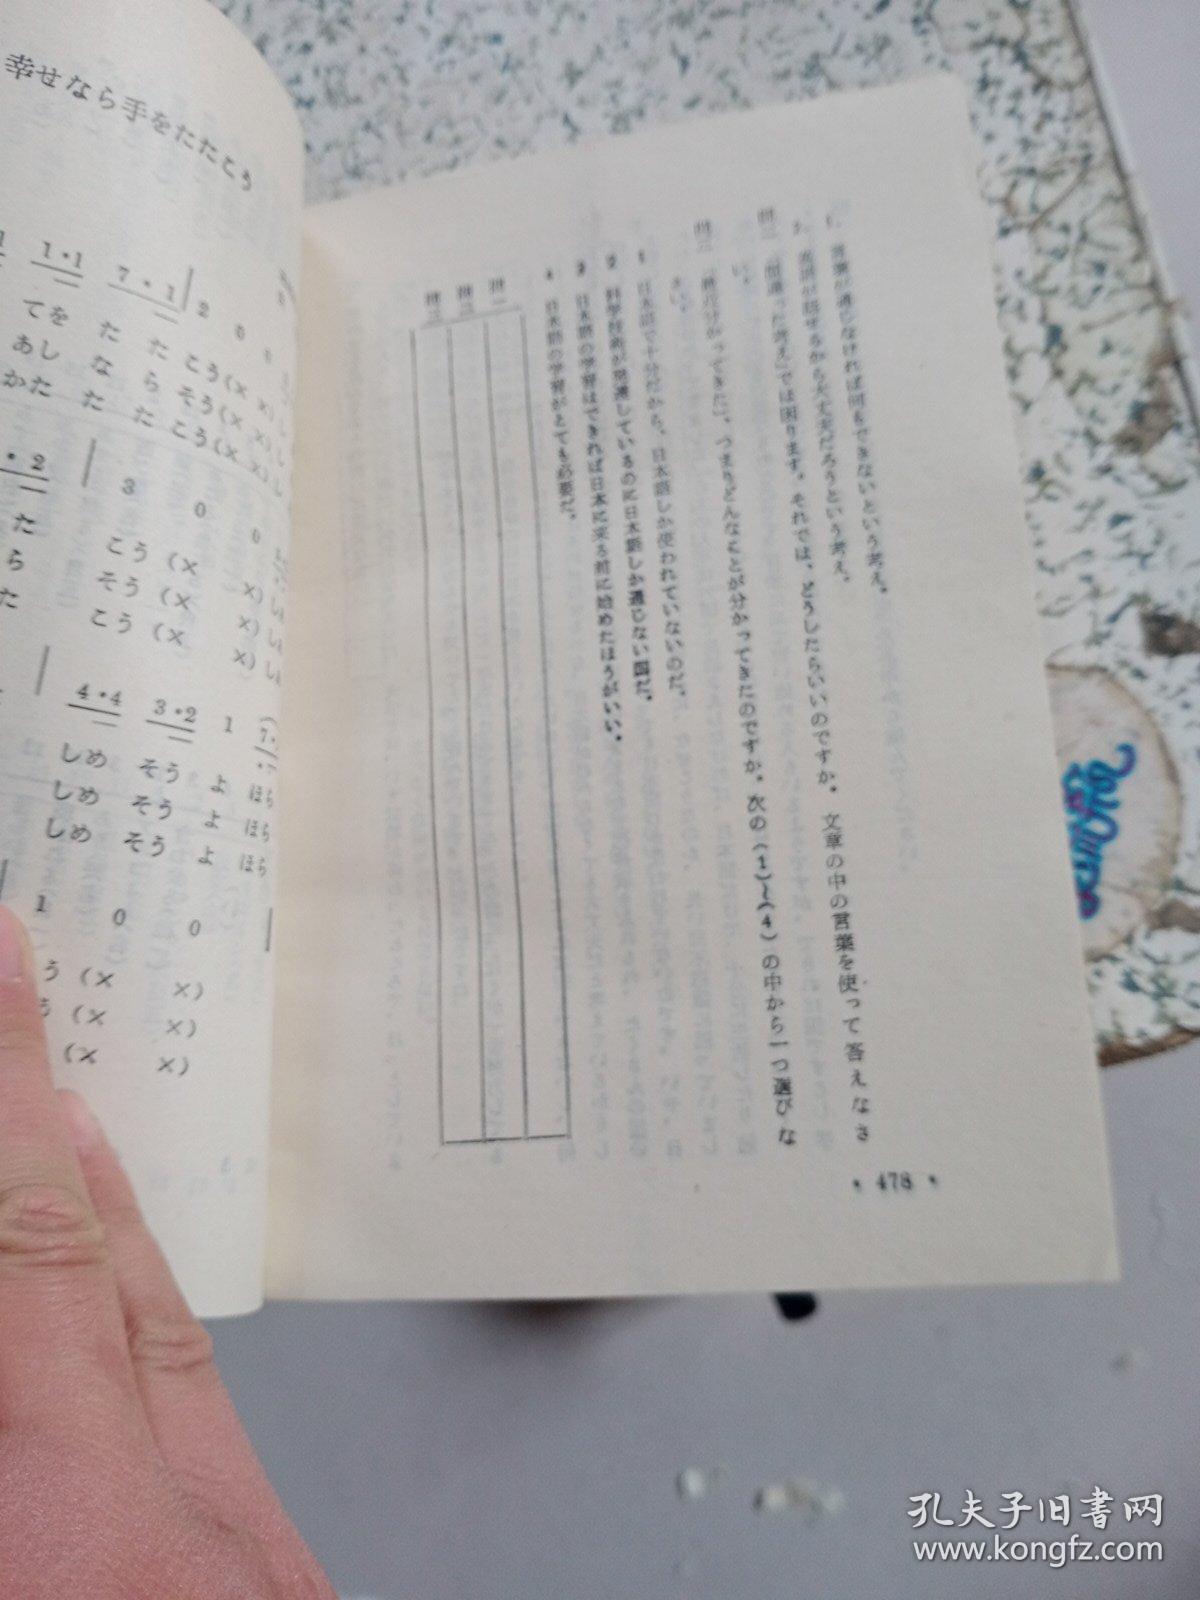 幸せなら手をたたこう
1・1 7・1 2 0 0
てを た た こう(× ×)し
あし な ら そう(× ×)し
かた た た こう(× ×)し
・2 3 0 0
た こう(× ×)しめ
ら そう(× ×)しめ
た こう(× ×)しめ
4・4 3・2 1
しめ そう よ ほら
しめ そう よ ほら
しめ そう よ ほら
1 0 0
う(× ×)
う(× ×)
(× ×)
言葉が通じなければ何もできないという考え。
英語が話せるから大丈夫だろうという考え。
問二 「間違った考え」では困ります。それでは、どうしたらいいのですか。文章の中の言葉を使って答えなさ
い。
問三 「最近分かってきた」、つまりどんなことが分かってきたのですか。次の(1)~(4)の中から一つ選びな
さい。
1 日本語で十分だから、日本語しか使われていないのだ。
2 科学技術が発達しているのに日本語しか通じない国だ。
3 日本語の学習はできれば日本に来る前に始めたほうがいい。
4 日本語の学習がとても必要だ。
問一
問二
問三
・478・
孔夫子旧书网
www.kongfz.com